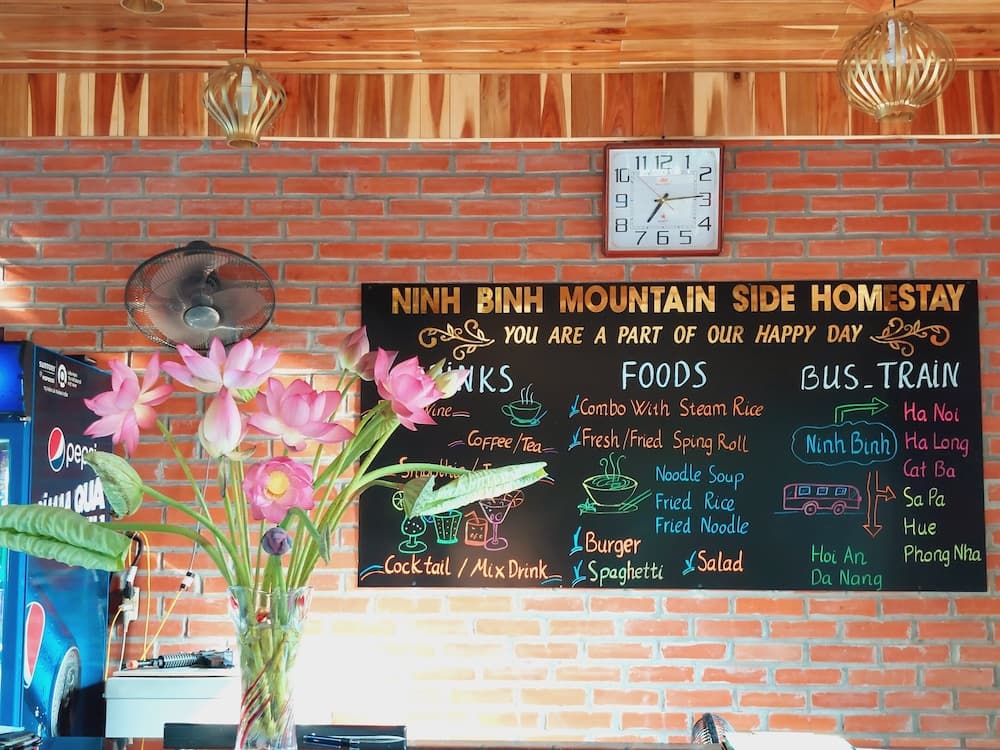 11 12 1
10 2
9 3
8 4
7 6 5
NINH BINH MOUNTAIN SIDE HOMESTAY
YOU ARE A PART OF OUR HAPPY DAY
FOODS
Combo With Steam Rice
Fresh/Fried Sping Roll
Noodle Soup
Fried Rice
Fried Noodle
Burger
Spaghetti
Salad
Coffee/Tea
Cocktail / Mix Drink
BUS_TRAIN
Ninh Binh
Ha Noi
Ha Long
Cat Ba
Sa Pa
Hue
Phong Nha
Hoi An
Da Nang
SUNTORY
pepsi